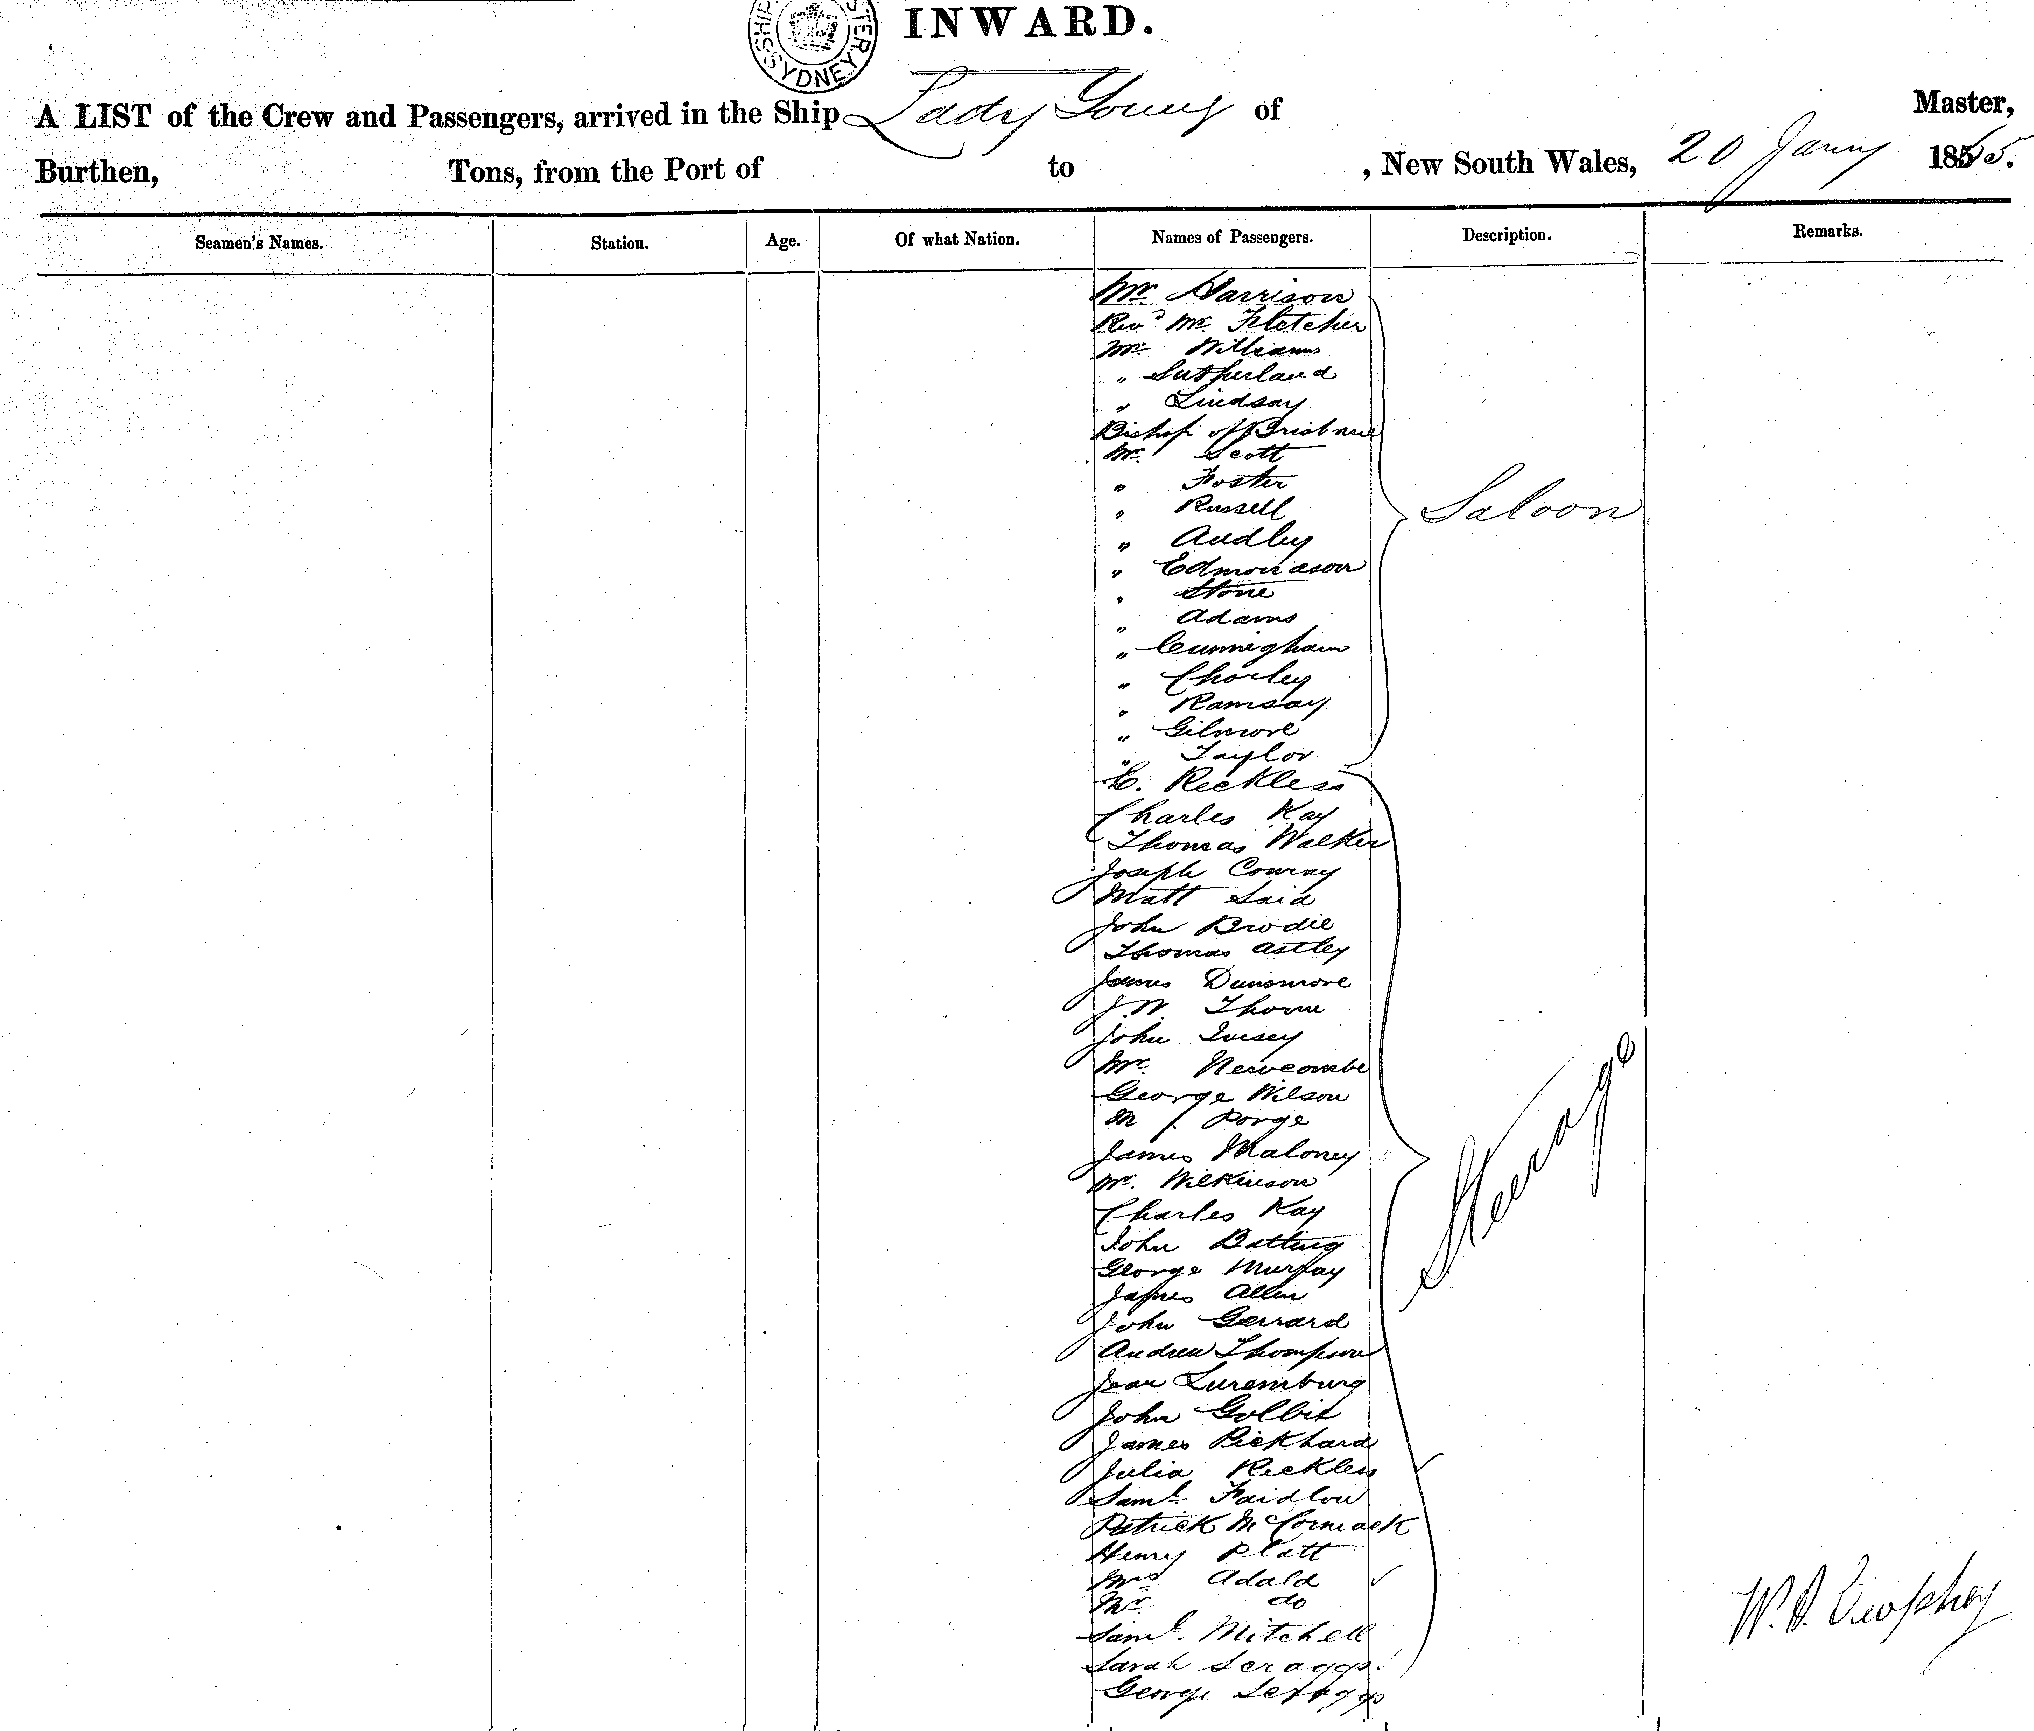 INWARD.
A LIST of the Crew and Passengers, arrived in the Ship Lady Young of Master,
Burthen, Tons, from the Port of to , New South Wales, 20 Jany 1865.
Seamen's Names. Station. Age. Of what Nation. Names of Passengers. Description. Remarks.
Mr. Harrison
Revd Mr. Fletcher
Mr. Williams
" Sutherland
" Lindsay
Bishop of Brisbane
Mr. Scott
" Foster
" Russell Saloon
" Audley
" Edmondson
" Stone
" Adams
" Cunnigham
" Chorley
" Ramsay
" Gilmore
" Taylor
C. Reckless
Charles Kay
Thomas Walker
Joseph Conroy
Matt Laid
John Brodie
Thomas Astley
James Dunsmore
J. W. Thorn
John
Mr. Newcombe
George Wilson
M Porge
James Maloney Steerage
Mr. Wilkinson
Charles Kay
John Batting
George Murray
James Allen
John Gerrard
Andrew Thompson
Jean Luremburg
John Golbit
James Pickhard
Julia Reckless
Saml. Faidlow
Patrick McCormack
Henry Platt
Mrs Adald
Mr. do
Saml. Mitchell
Sarah Scraggs
George Scraggs
W. D.